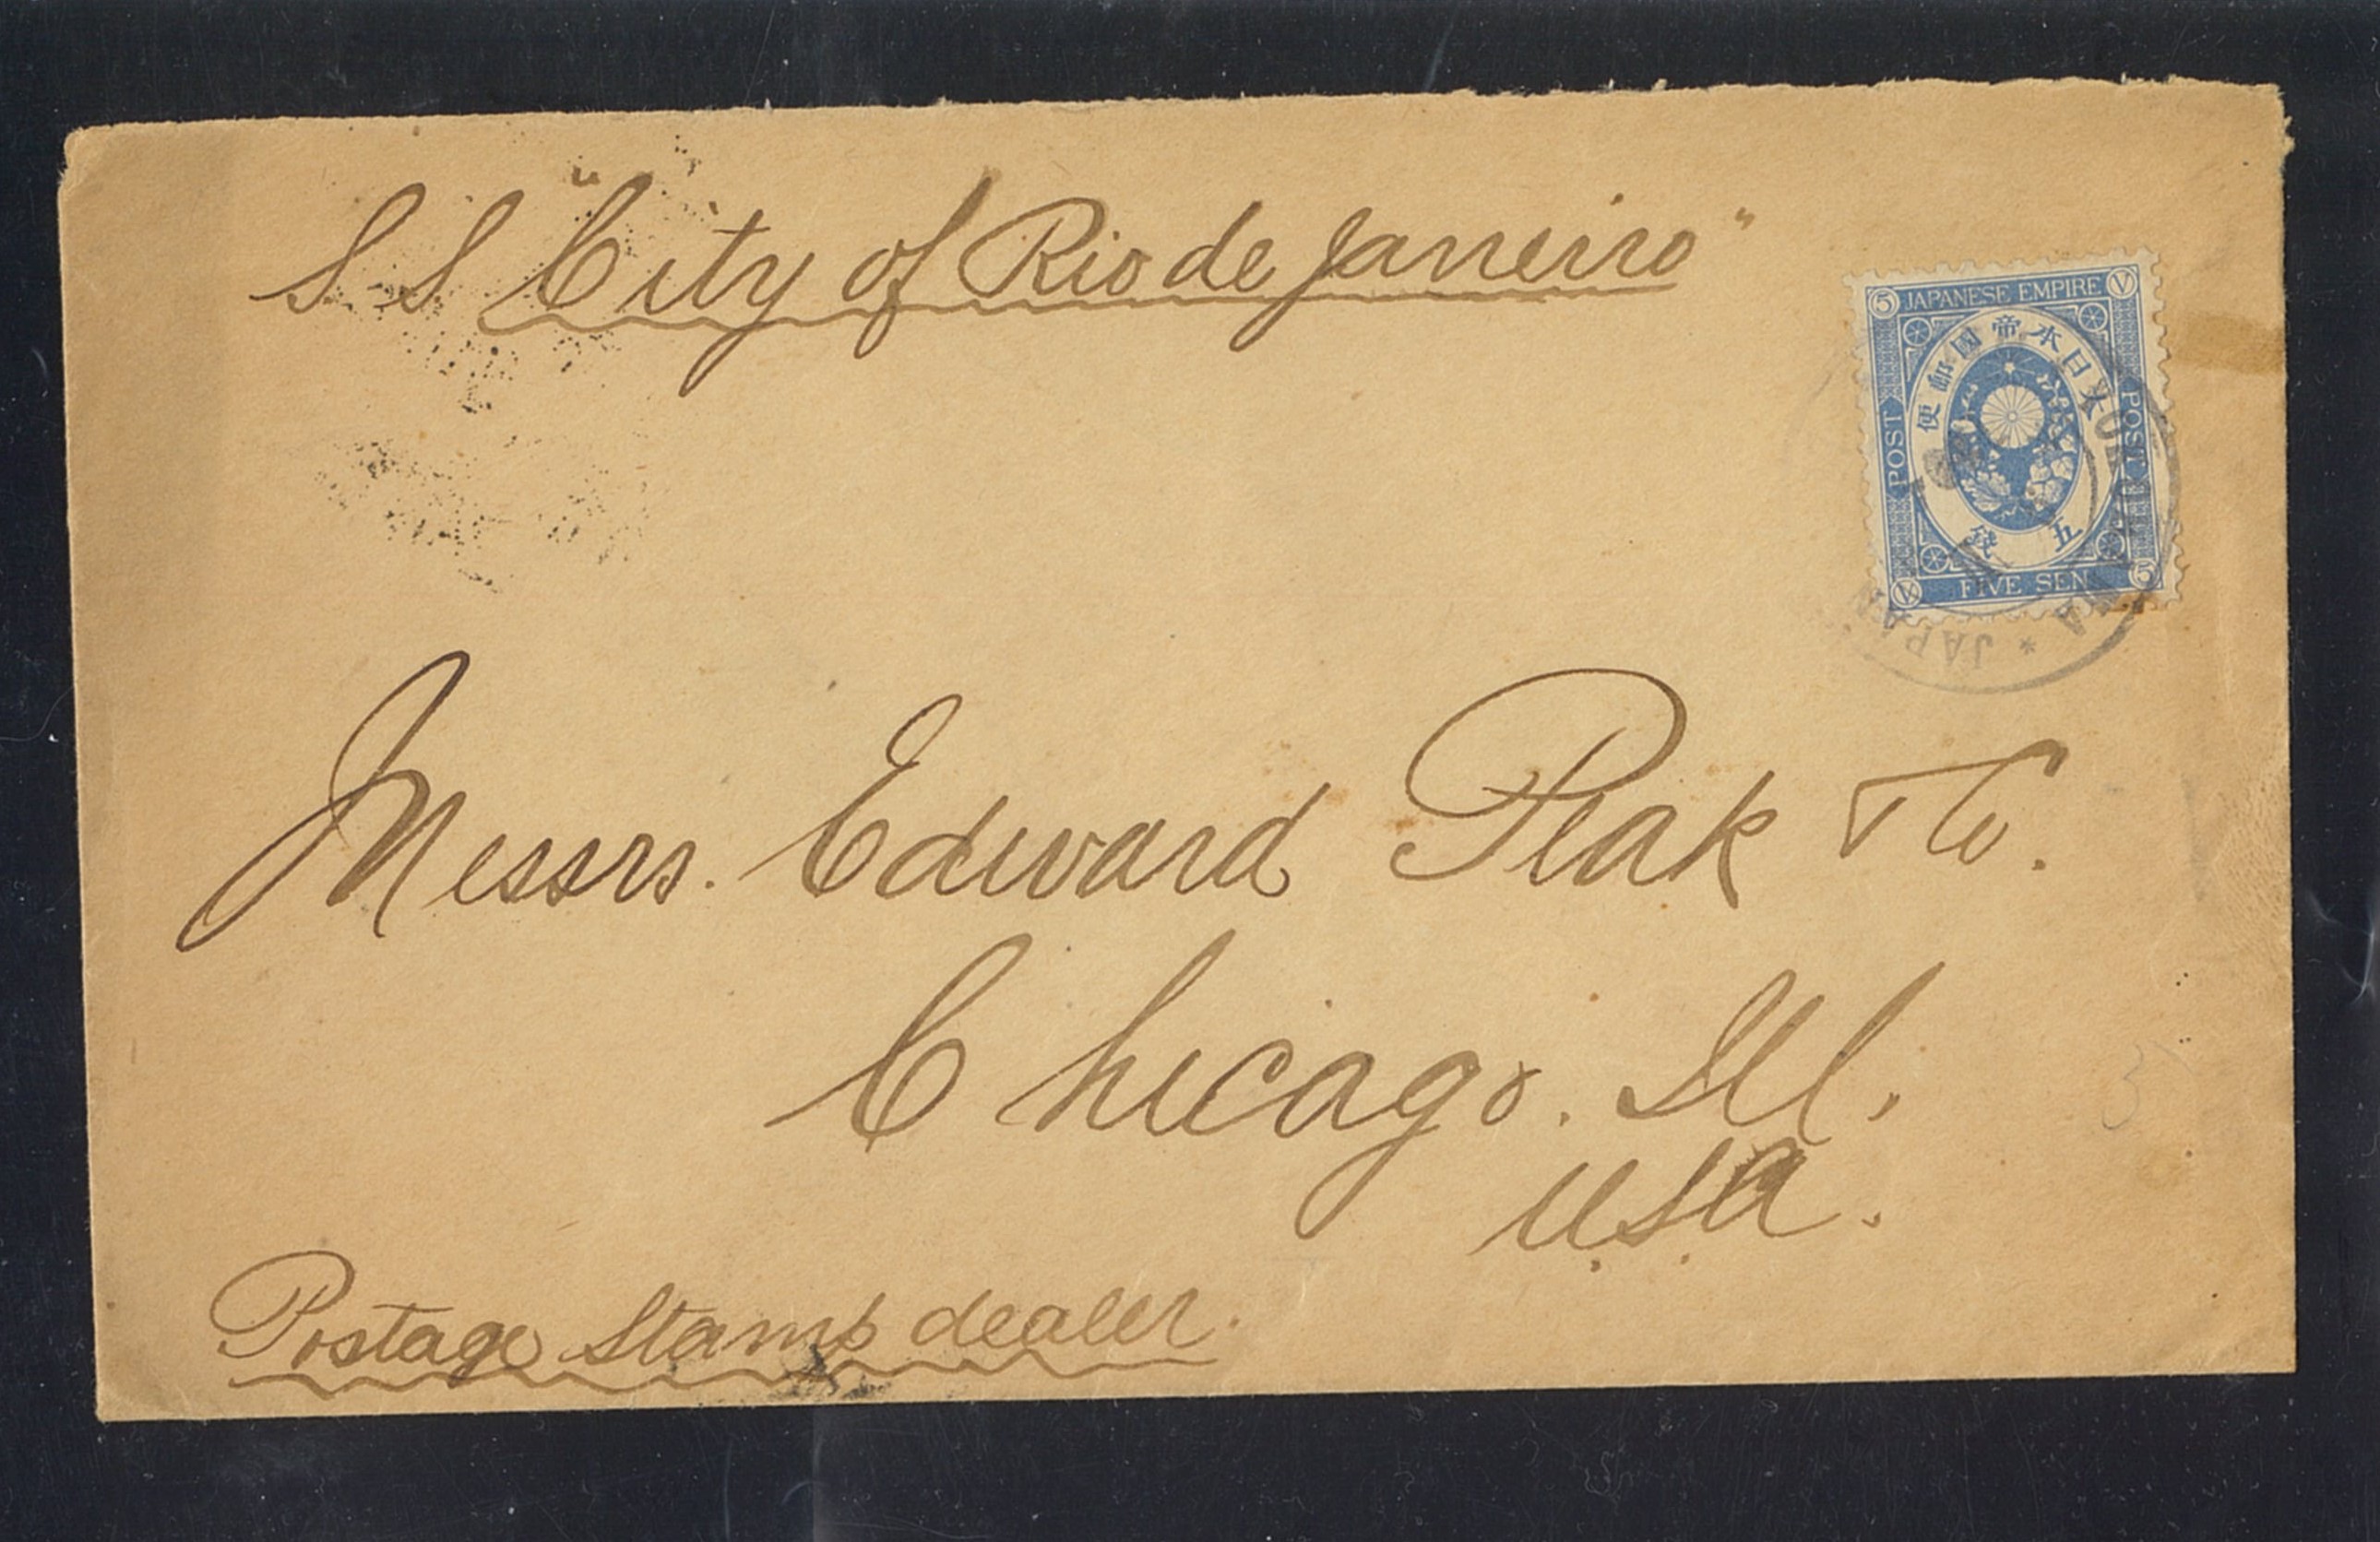 S S "City of Rio de Janeiro"
5 JAPANESE EMPIRE V
大日本帝國郵便
POST
POST
五錢
V FIVE SEN 5
YOKOHAMA * JAPAN
Messrs. Edward Peak & Co.
Chicago. Ill.
USA.
Postage Stamp dealer.